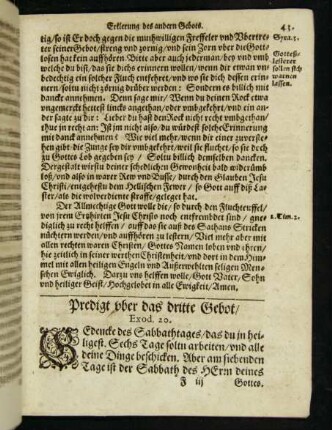 Erklerung des andern Gebots. 41.
tig/so ist Er doch gegen die mutwilligen Freffeler vnd Vbertre-
ter seiner Gebot/streng vnd zornig/vnd sein Zorn vber die Gott-
losen hat kein auffhören. Bitte aber auch jederman/bey vnd vmb
welche du bist/das sie dichs erinnern wollen/wenn dir etwan vn-
bedechtig ein solcher Fluch entfehret/vnd wo sie dich dessen erin-
nern/soltu nicht zörnig drüber werden: Sondern es billich mit
danck annehmen. Denn sage mir/Wenn du deinen Rock etwa
vngemerckt heitest lincks angethan/oder vmbgekehrt/vnd ein an-
der sagte zu dir: Lieber du hast den Rock nicht recht vmbgethan/
thue in recht an: Ist jm nicht also/du würdest solche Erinnerung
mit danck annehmen? Wie viel mehr/wenn dir einer zuverste-
hen gibt die Zunge sey dir vmbgekehrt/weil sie fluchet/so sie doch
zu Gottes Lob gegeben sey/Soltu billich demselben dancken.
Dergestalt wirstu deiner schedlichen Gewonheit bald wider umb
loß/vnd also in warer Rew vnd Busse/durch den Glauben Jesu
Christi/entgehestu dem Hellischen Fewer/so Gott auff diß La-
ster/als die wolverdiente straffe/geleget hat.
Der Allmechtige Gott wolle die/so durch den Fluchteuffel/
von jrem Erhürten Jesu Christo noch entfrembdet sind/gne-
diglich zu recht helffen/auff das sie auß des Sathans Stricken
nüchtern werden/vnd auffhören zu lestern/Viel mehr aber mit
allen rechten waren Christen/Gottes Namen loben vnd ehren/
hie zeitlich in seiner werthen Christenheit/vnd dort in dem Him-
mel mit allen heiligen Engeln vnd Außerwehlten seligen Men-
schen Ewiglich. Darzu vns helffen wolle/Gott Vater/Sohn
vnd heiliger Geist/Hochgelobet in alle Ewigkeit/Amen.
Syra.5.
Gotteßle-
sterer
sollen sich
warnen
lassen.
2.Tim.2.
Predigt vber das dritte Gebot/
Exod. 20.
GEdencke des Sabbathtages/das du in hei-
ligest. Sechs Tage soltu arbeiten/vnd alle
deine Dinge beschicken. Aber am siebenden
Tage ist der Sabbath des HErrn deines
F iij Gottes.